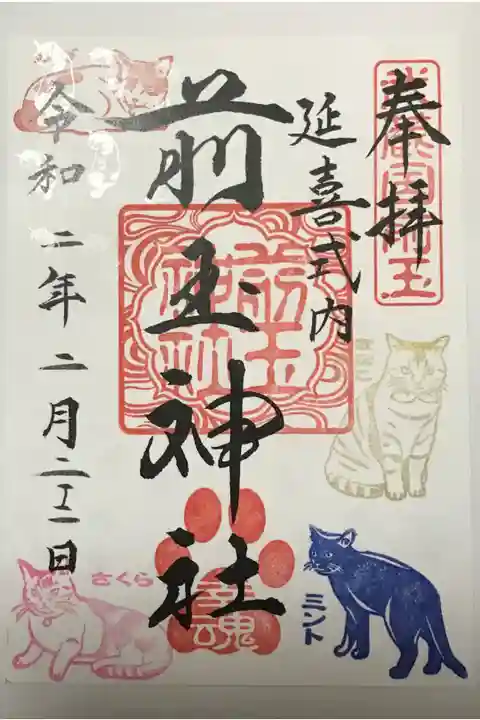 奉拝
延喜式内
前玉神社
令和二年二月二二日
前玉
神社
幸魂
さくら
ミント